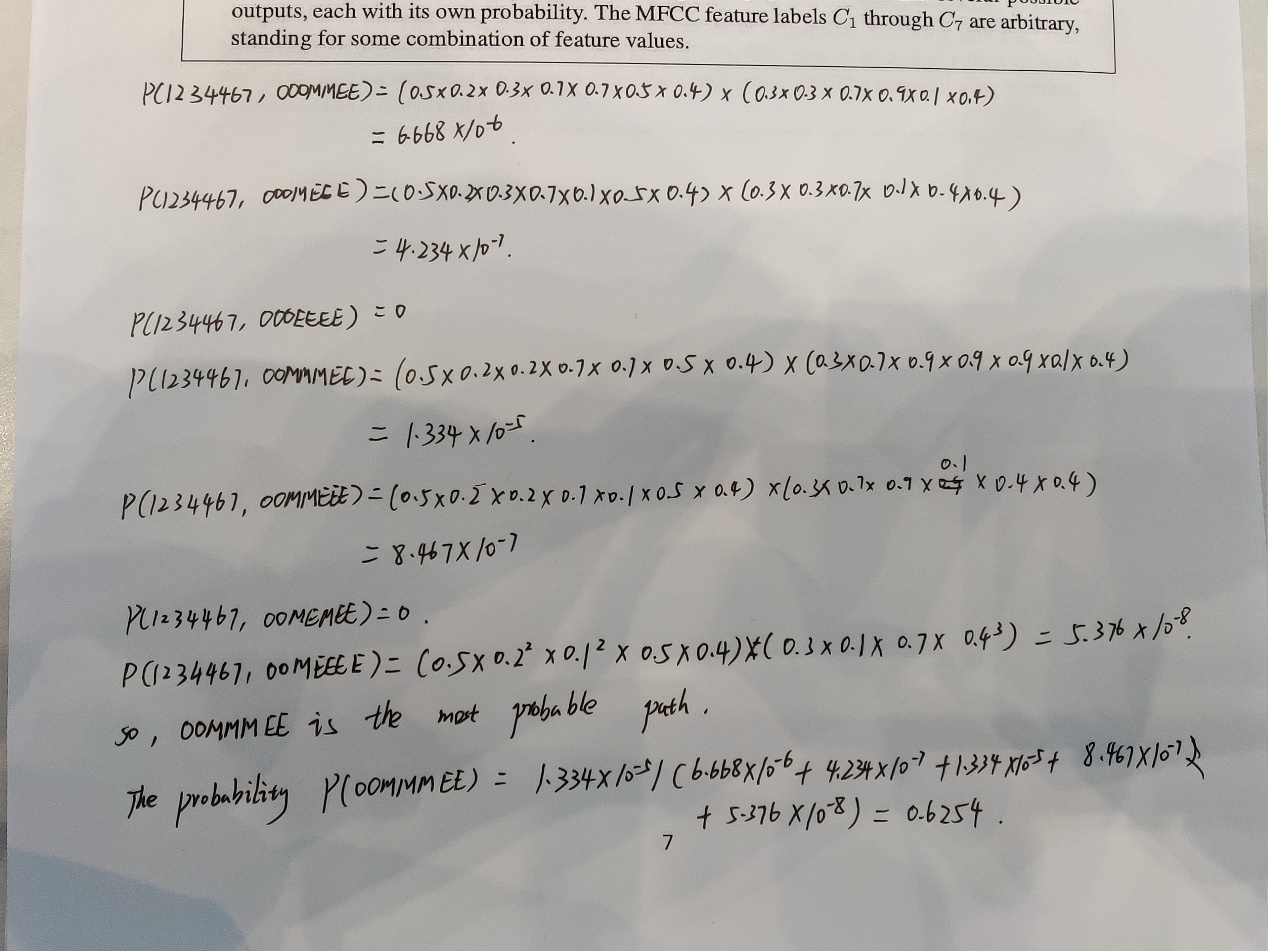 outputs, each with its own probability. The MFCC feature labels C₁ through C₇ are arbitrary,
standing for some combination of feature values.
P(1234467, OOOMMEE) = (0.5×0.2×0.3×0.7×0.7×0.5×0.4) × (0.3×0.3×0.7×0.9×0.1×0.4)
= 6.668×10⁻⁶.
P(1234467, OOOMEEE) = (0.5×0.2×0.3×0.7×0.1×0.5×0.4) × (0.3×0.3×0.7×0.1×0.4×0.4)
= 4.234×10⁻⁷.
P(1234467, OOOEEEE) = 0
P(1234467, OOMMMEE) = (0.5×0.2×0.2×0.7×0.7×0.5×0.4) × (0.3×0.7×0.9×0.9×0.9×0.1×0.4)
= 1.334×10⁻⁵.
P(1234467, OOMMEEE) = (0.5×0.2×0.2×0.7×0.1×0.5×0.4) × (0.3×0.7×0.9×0.1×0.4×0.4)
= 8.467×10⁻⁷
P(1234467, OOMEMEE) = 0.
P(1234467, OOMEEEE) = (0.5×0.2²×0.1²×0.5×0.4)×(0.3×0.1×0.7×0.4³) = 5.376×10⁻⁸.
so, OOMMMEE is the most probable path.
The probability P(OOMMMEE) = 1.334×10⁻⁵/(6.668×10⁻⁶+4.234×10⁻⁷+1.334×10⁻⁵+8.467×10⁻⁷
+5.376×10⁻⁸) = 0.6254.
7